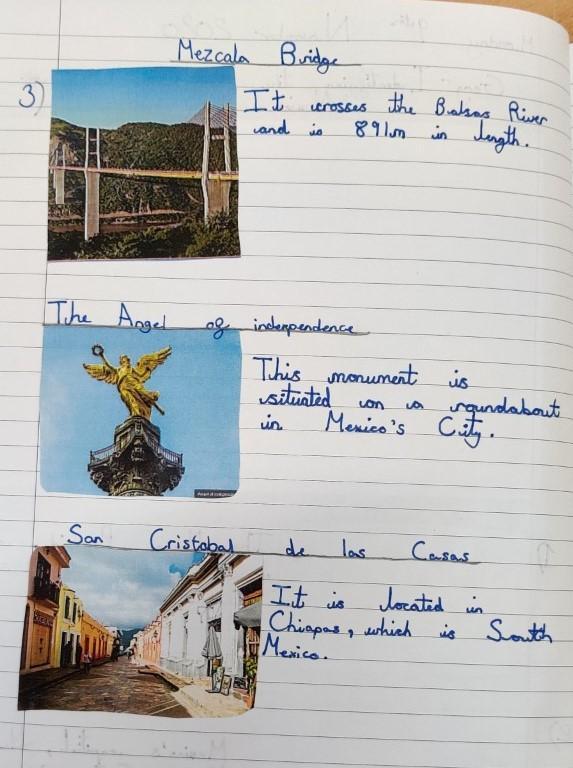 Mezcala Bridge
3)
It crosses the Balsas River
and is 891m in length.
The Angel of independence
This monument is
situated on a roundabout
in Mexico's City.
San Cristobal de las Casas
It is located in
Chiapas, which is South
Mexico.